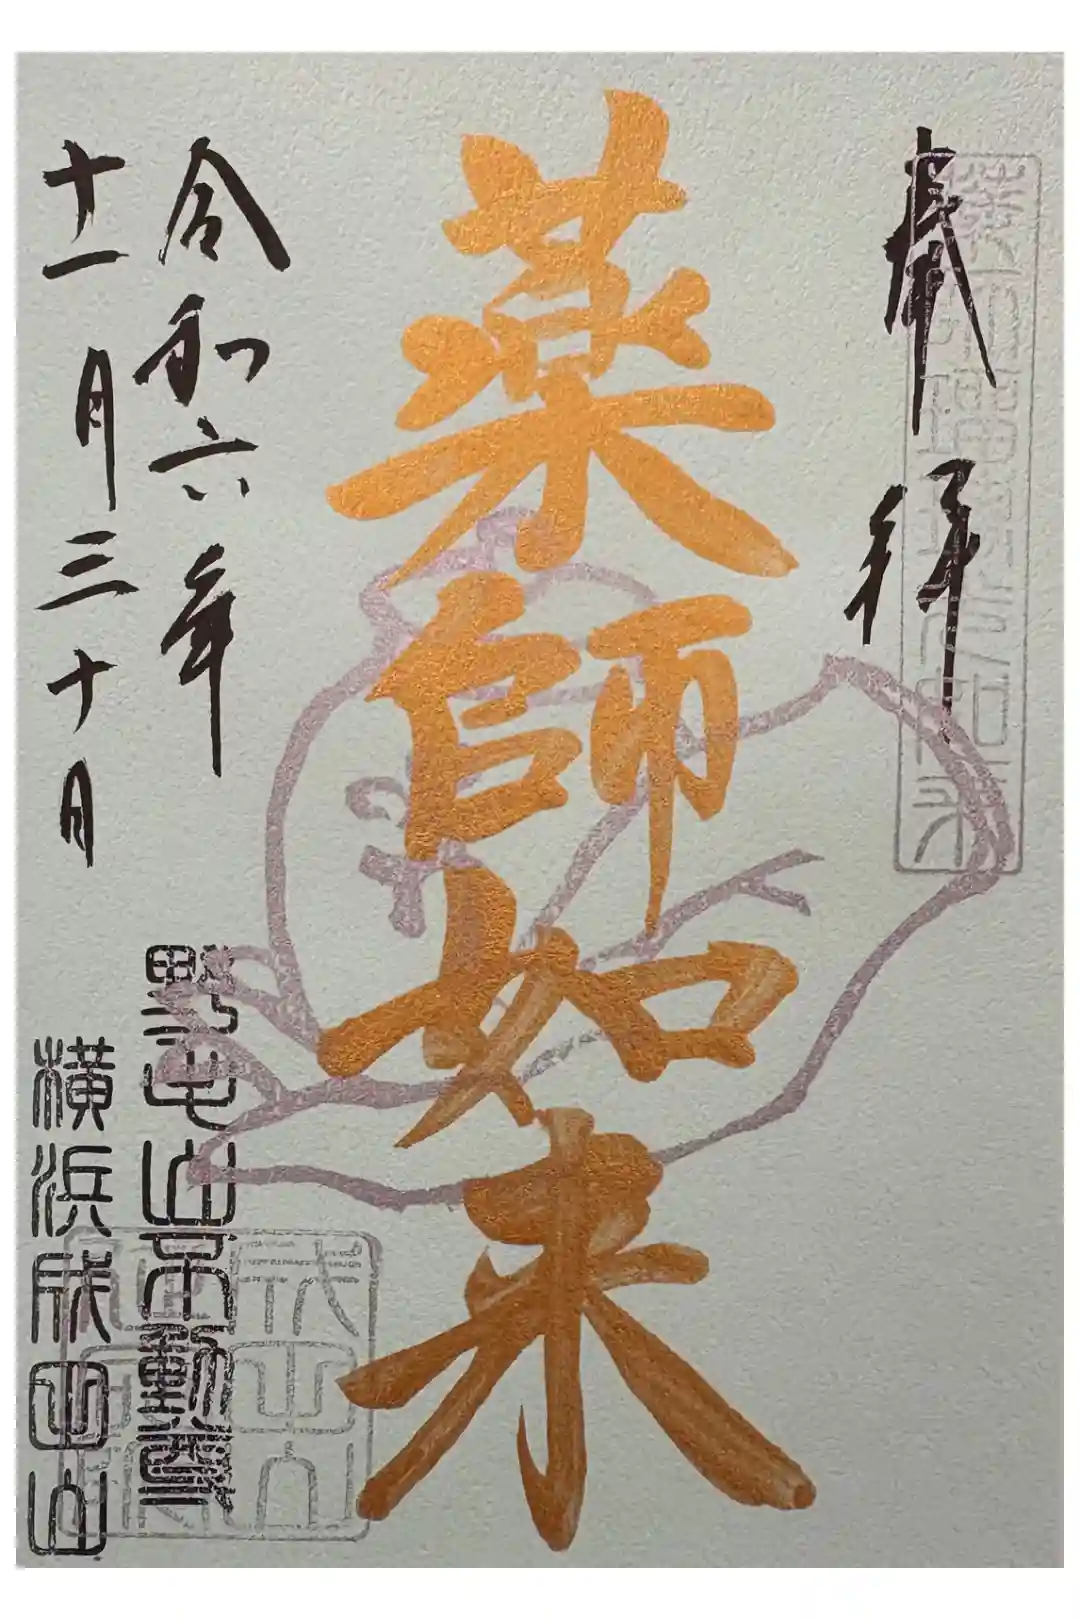 奉拝
薬師如来
令和六年
十一月三十日
野毛山不動尊
横浜成田山